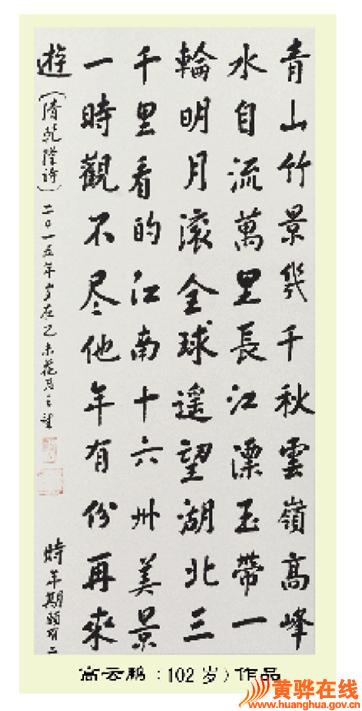 青山竹景幾千秋雲嶺高峰
水自流萬里長江漂玉帶一
輪明月滚全球遥望湖北三
千里看的江南十六州美景
一時觀不尽他年有份再來
遊（清乾隆诗）二〇一五年岁在乙未花月之望
時年期頤有二
高云鹏（102岁）作品
黄骅在线
www.huanghua.gov.cn